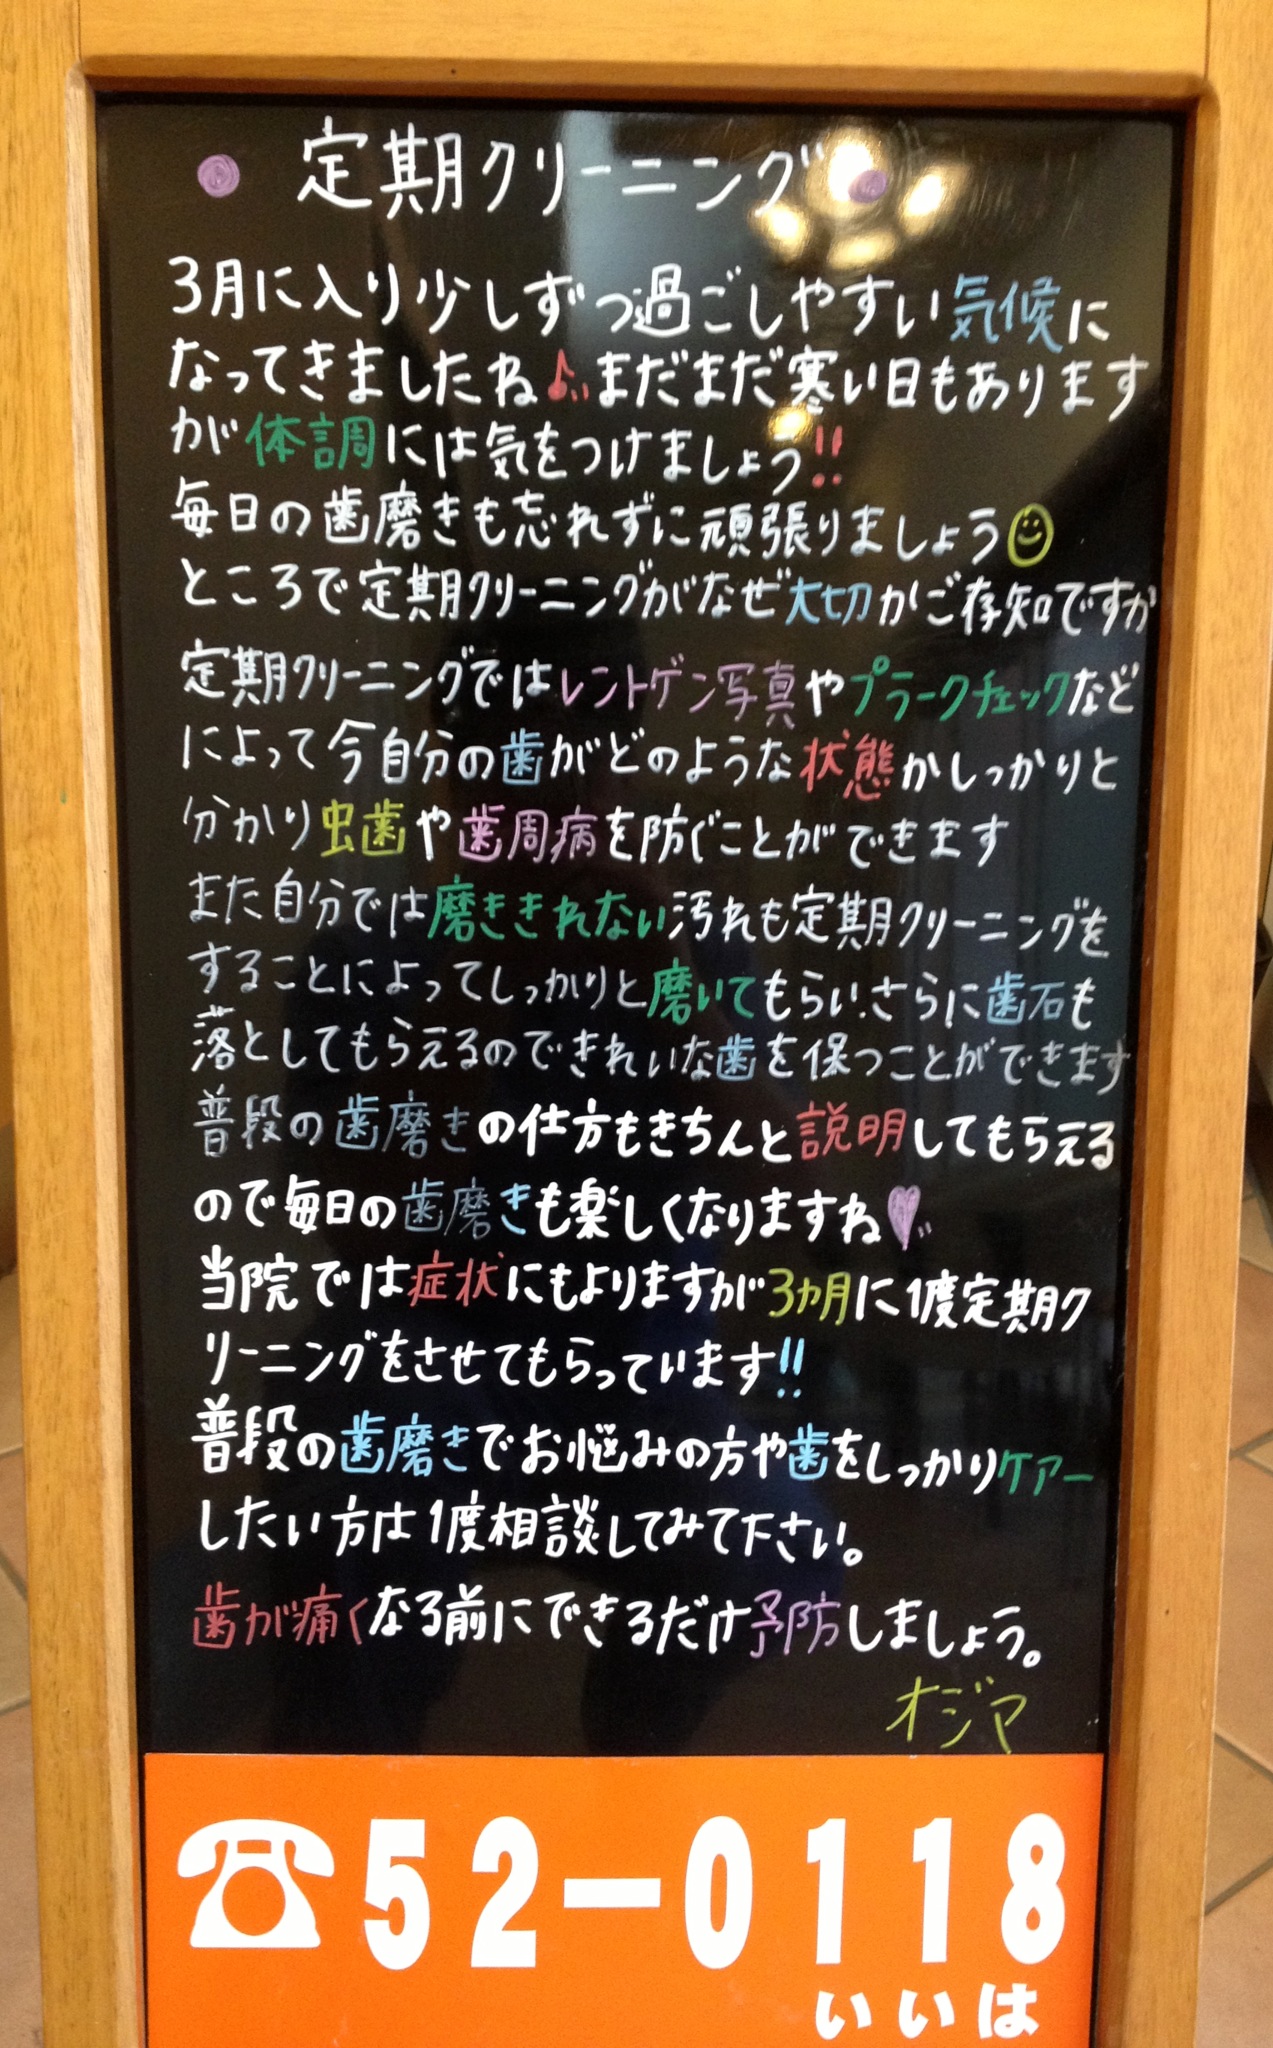 定期クリーニング
3月に入り少しずつ過ごしやすい気候に
なってきましたね♪まだまだ寒い日もあります
が体調には気をつけましょう!!
毎日の歯磨きも忘れずに頑張りましょう☺
ところで定期クリーニングがなぜ大切かご存知ですか
定期クリーニングではレントゲン写真やプラークチェックなど
によって今自分の歯がどのような状態かしっかりと
分かり虫歯や歯周病を防ぐことができます
また自分では磨ききれない汚れも定期クリーニングを
することによってしっかりと磨いてもらい.さらに歯石も
落としてもらえるのできれいな歯を保つことができます
普段の歯磨きの仕方もきちんと説明してもらえる
ので毎日の歯磨きも楽しくなりますね♥
当院では症状にもよりますが3カ月に1度定期ク
リーニングをさせてもらっています!!
普段の歯磨きでお悩みの方や歯をしっかりケアー
したい方は1度相談してみて下さい。
歯が痛くなる前にできるだけ予防しましょう。
オジマ
☎52-0118
いいは